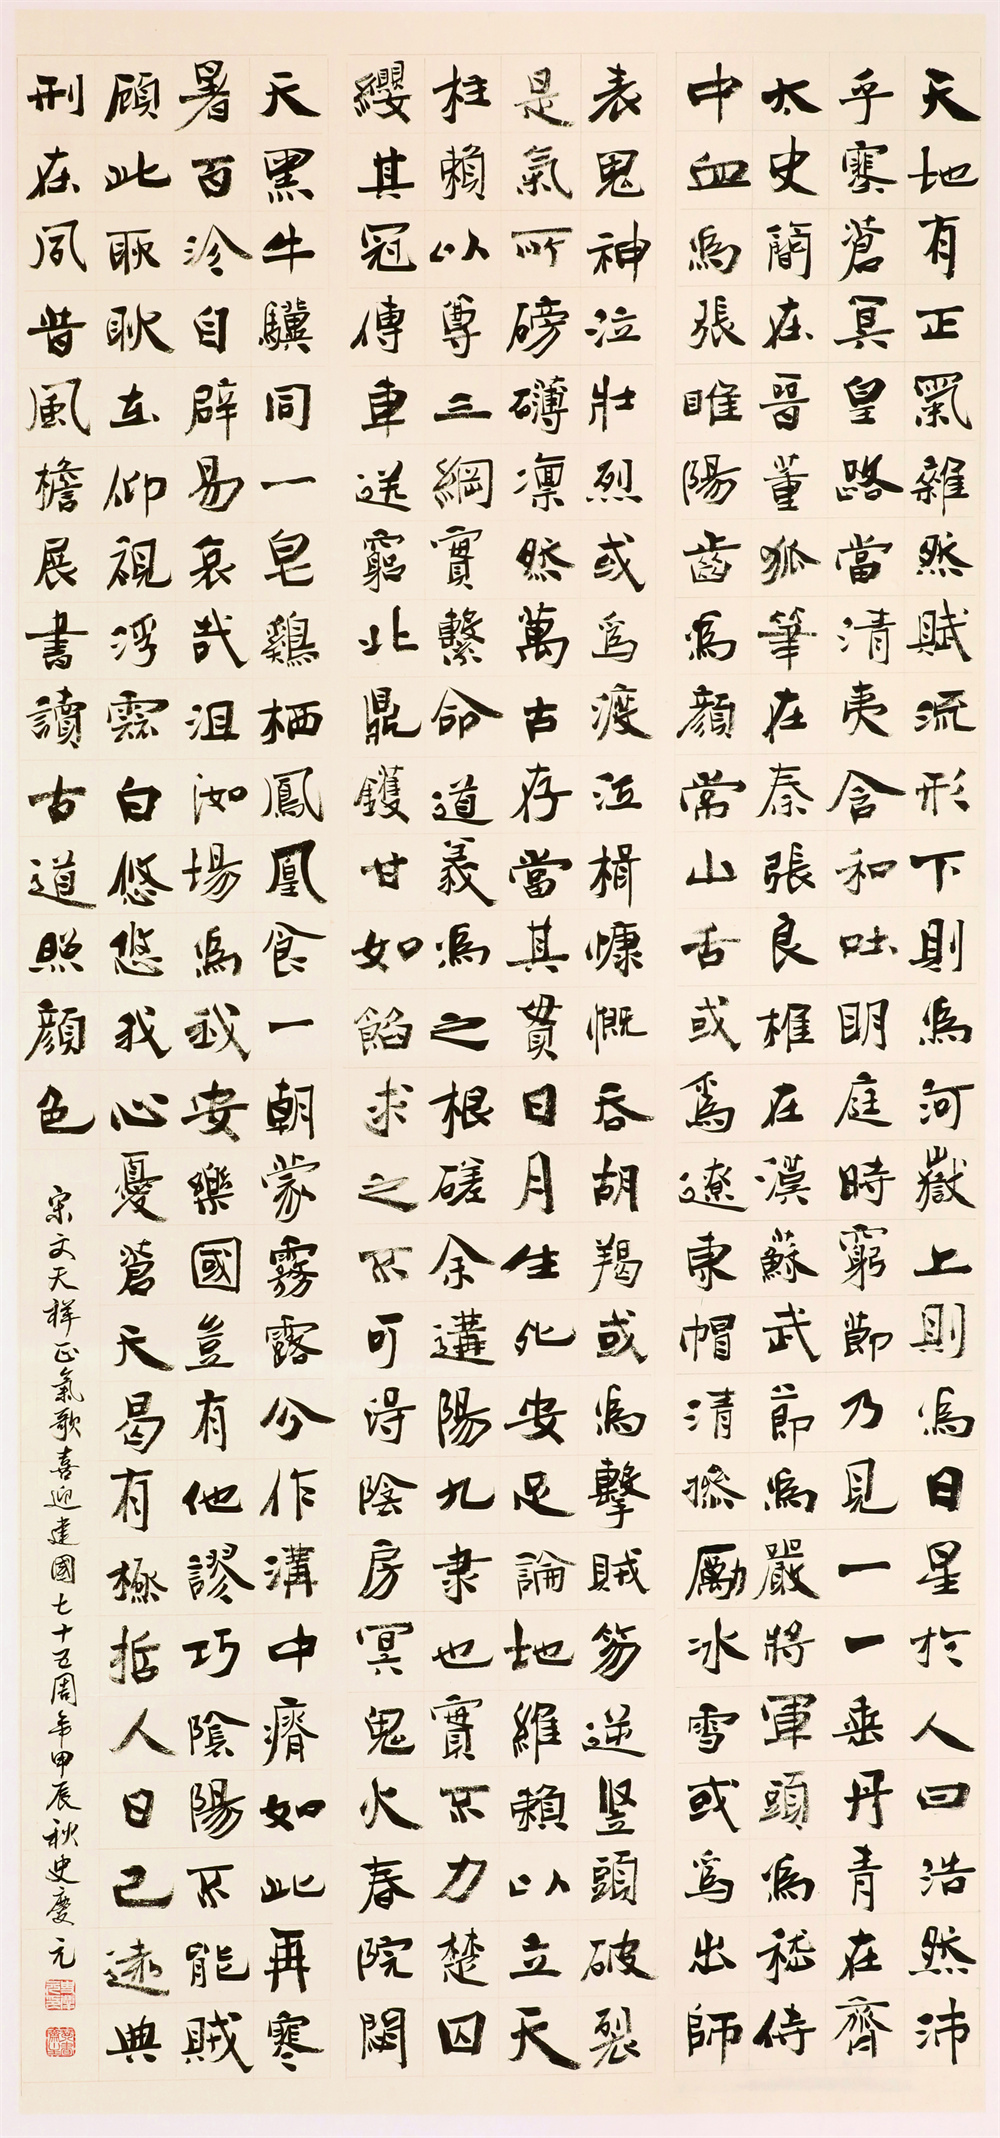 天地有正氣雜然賦流形下則為河嶽上則為日星於人曰浩然沛
乎塞蒼冥皇路當清夷含和吐明庭時窮節乃見一一垂丹青在齊
太史簡在晉董狐筆在秦張良椎在漢蘇武節為嚴將軍頭為嵇侍
中血為張睢陽齒為顏常山舌或為遼東帽清操勵冰雪或為出師
表鬼神泣壯烈或為渡江楫慷慨吞胡羯或為擊賊笏逆豎頭破裂
是氣所磅礴凜然萬古存當其貫日月生死安足論地維賴以立天
柱賴以尊三綱實繫命道義為之根磋余遘陽九隸也實不力楚囚
纓其冠傳車送窮北鼎鑊甘如飴求之不可得陰房冥鬼火春院閟
天黑牛驥同一皂鷄栖鳳凰食一朝蒙霧露分作溝中瘠如此再寒
暑百沴自辟易哀哉沮洳場為我安樂國豈有他謬巧陰陽不能賊
顧此耿耿在仰視浮雲白悠悠我心憂蒼天曷有極哲人日已遠典
刑在夙昔風檐展書讀古道照顏色
宋文天祥正氣歌喜迎建國七十五周年甲辰秋史慶元